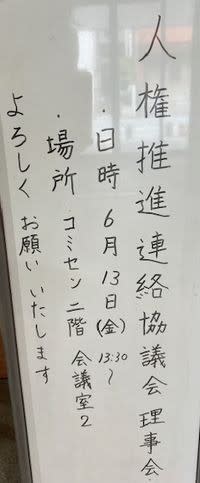 人権推進連絡協議会理事会
・日時 6月13日(金) 13:30～
・場所 コミセン二階 会議室2
よろしくお願いいたします